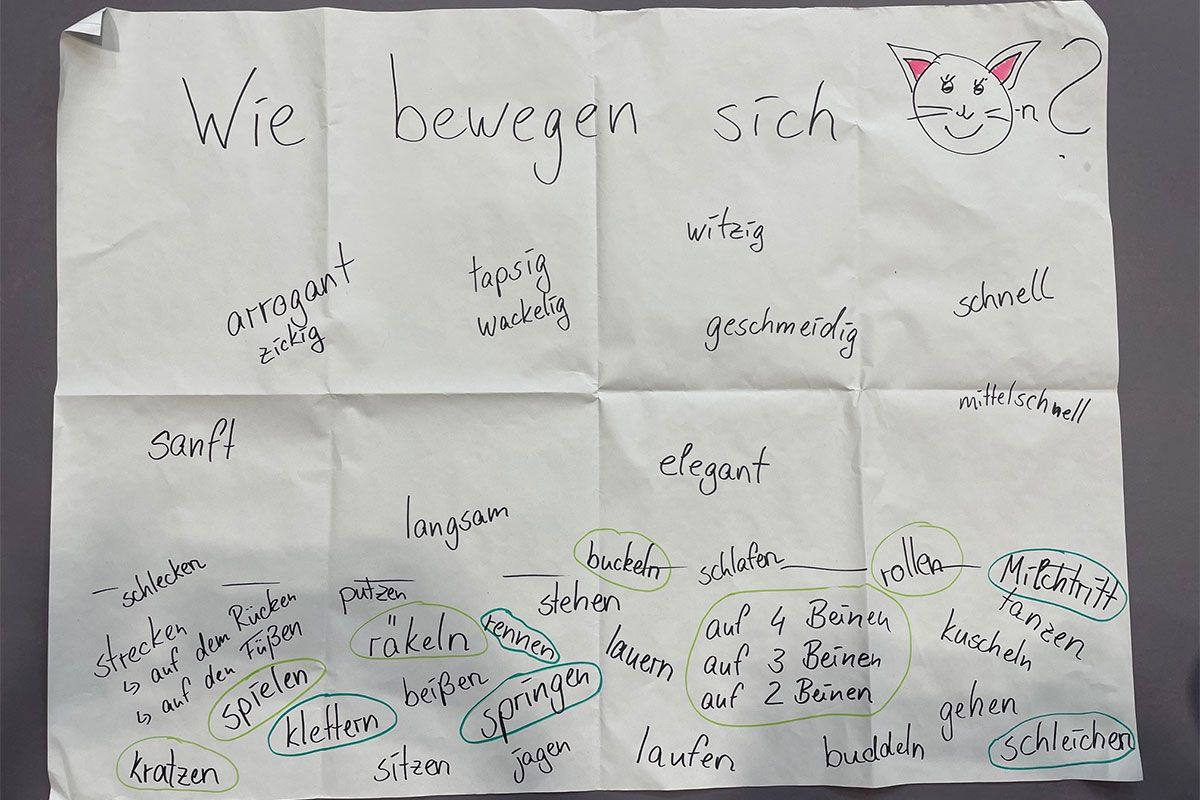 Wie bewegen sich -n?
witzig
arrogant
zickig
tapsig
wackelig
geschmeidig
schnell
mittelschnell
sanft
elegant
langsam
schlecken
putzen
stehen
buckeln
schlafen
rollen
Milchtritt
tanzen
kuscheln
strecken
↳ auf dem Rücken
↳ auf den Füßen
räkeln
rennen
lauern
auf 4 Beinen
auf 3 Beinen
auf 2 Beinen
spielen
klettern
beißen
springen
gehen
schleichen
kratzen
sitzen
jagen
laufen
buddeln